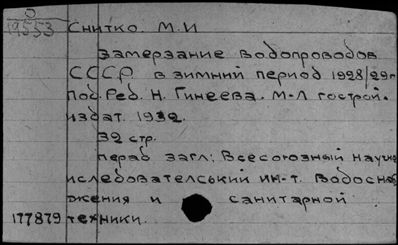 О
19553 Снитко. М.И
Замерзание водопроводов
СССР в зимний период 1928/29г
Под. Ред. Н. Гинеева. М-Л гострой.
издат. 1932.
32 стр.
перед загл: Всесоюзный научн
иследователський ин-т. водосна
жения и санитарной
177879 техники.